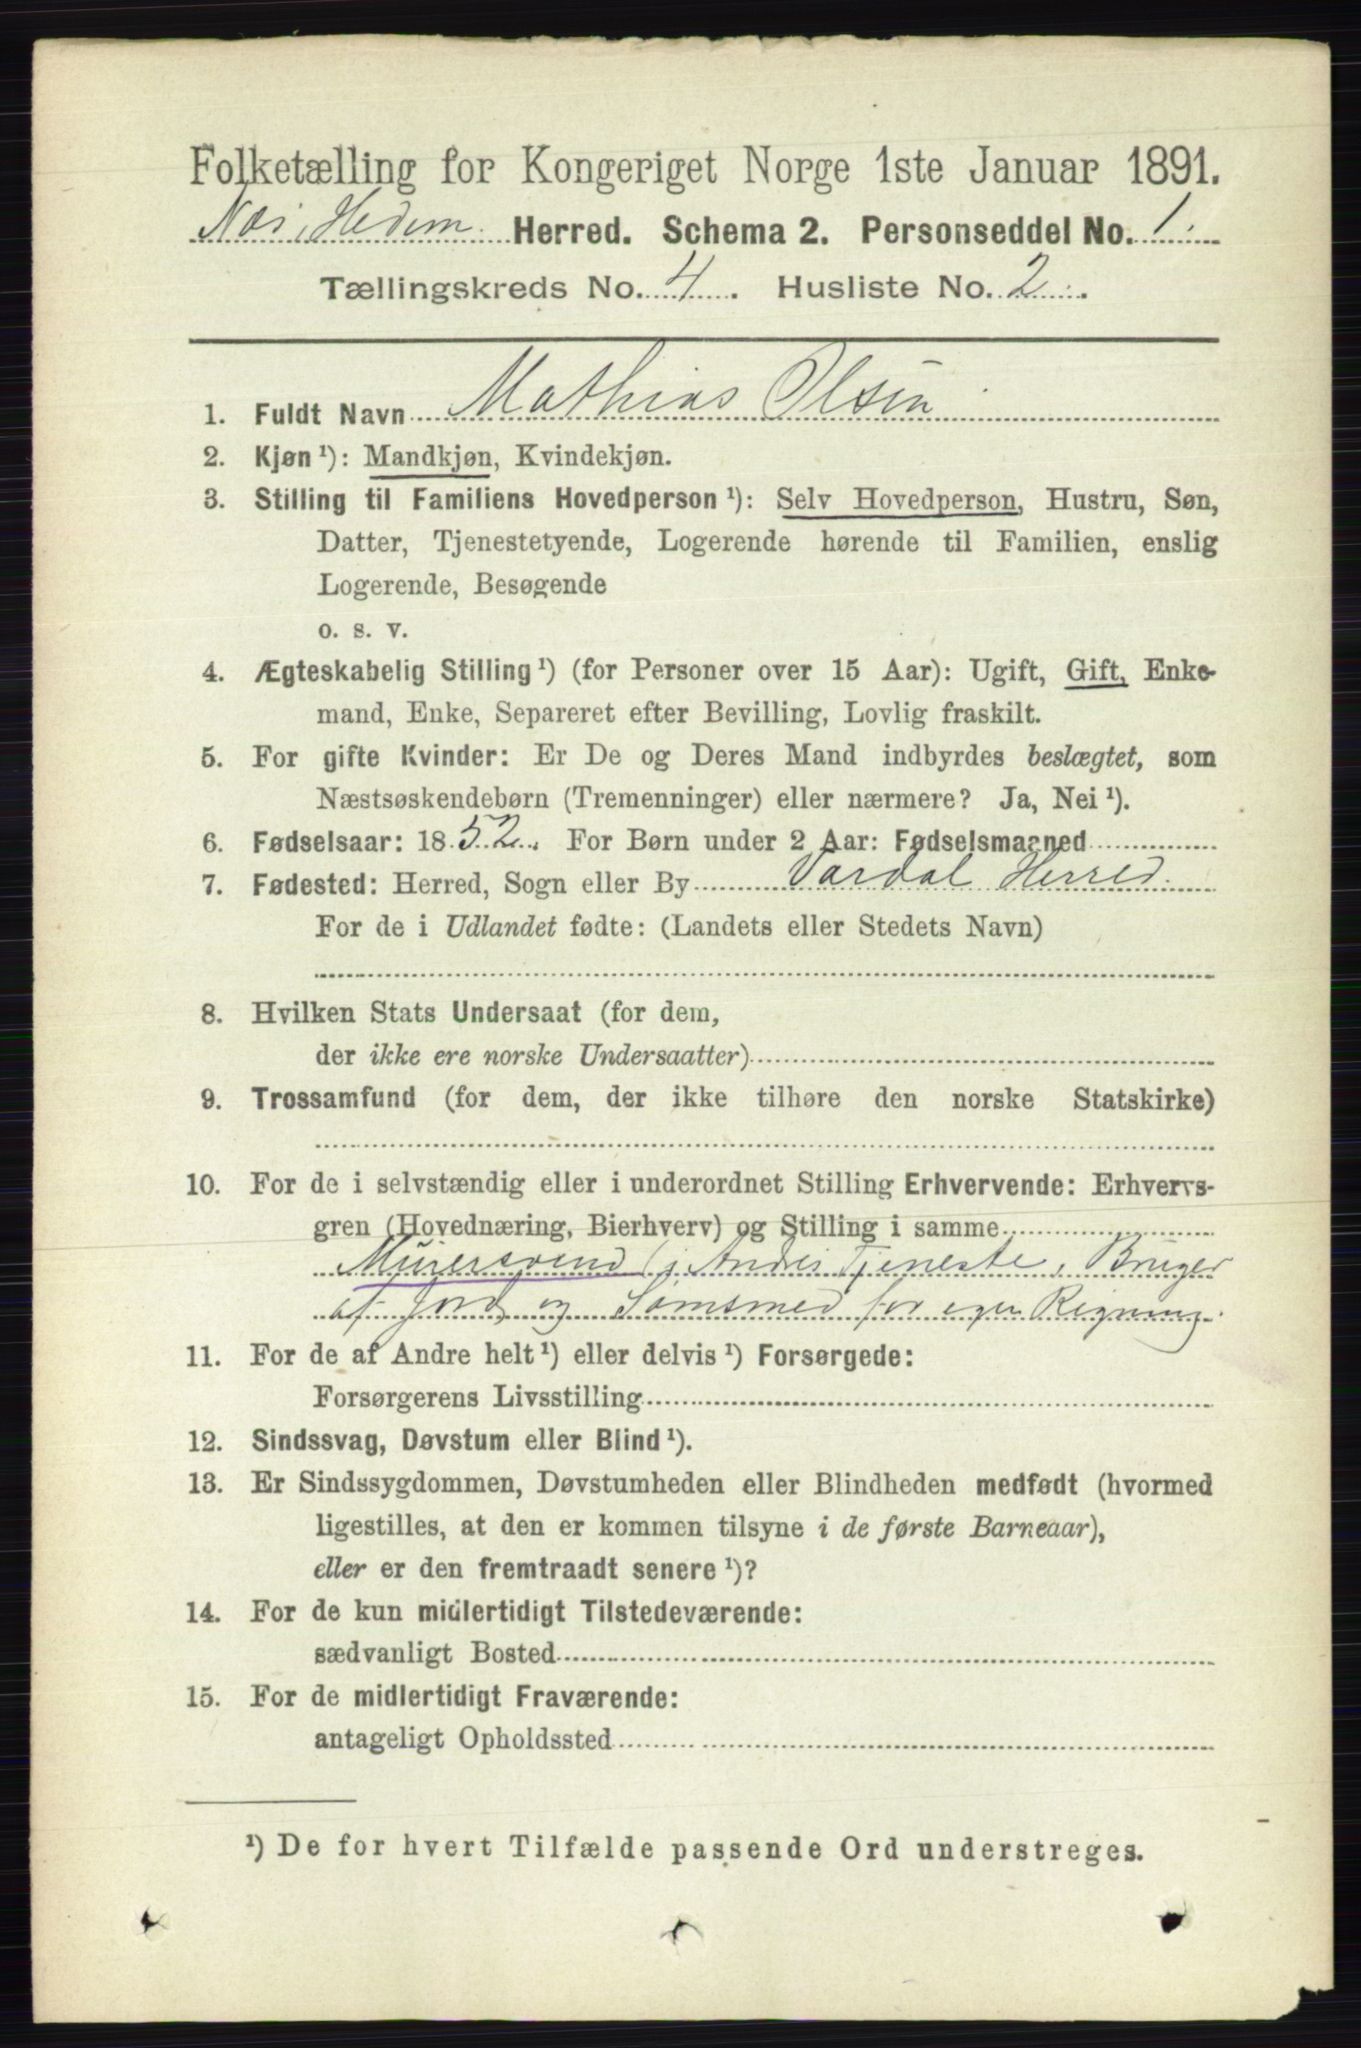 Folketælling for Kongeriget Norge 1ste Januar 1891.
Næs, Hedem. Herred. Schema 2. Personseddel No. 1.
Tællingskreds No. 4. Husliste No. 2.
1. Fuldt Navn Mathias Olsen
2. Kjøn ¹): Mandkjøn, Kvindekjøn.
3. Stilling til Familiens Hovedperson ¹): Selv Hovedperson, Hustru, Søn,
Datter, Tjenestetyende, Logerende hørende til Familien, enslig
Logerende, Besøgende
o. s. v.
4. Ægteskabelig Stilling ¹) (for Personer over 15 Aar): Ugift, Gift, Enke-
mand, Enke, Separeret efter Bevilling, Lovlig fraskilt.
5. For gifte Kvinder: Er De og Deres Mand indbyrdes beslægtet, som
Næstsøskendebørn (Tremenninger) eller nærmere? Ja, Nei ¹).
6. Fødselsaar: 1852. For Børn under 2 Aar: Fødselsmaaned
7. Fødested: Herred, Sogn eller By Vardal Herred.
For de i Udlandet fødte: (Landets eller Stedets Navn)
8. Hvilken Stats Undersaat (for dem,
der ikke ere norske Undersaatter)
9. Trossamfund (for dem, der ikke tilhøre den norske Statskirke)
10. For de i selvstændig eller i underordnet Stilling Erhvervende: Erhvervs-
gren (Hovednæring, Bierhverv) og Stilling i samme
Murersvend i Andres Tjeneste, Bruger
af Jord og for egen Regning.
11. For de af Andre helt ¹) eller delvis ¹) Forsørgede:
Forsørgerens Livsstilling
12. Sindssvag, Døvstum eller Blind ¹).
13. Er Sindssygdommen, Døvstumheden eller Blindheden medfødt (hvormed
ligestilles, at den er kommen tilsyne i de første Barneaar),
eller er den fremtraadt senere ¹)?
14. For de kun midlertidigt Tilstedeværende:
sædvanligt Bosted
15. For de midlertidigt Fraværende:
antageligt Opholdssted
¹) De for hvert Tilfælde passende Ord understreges.